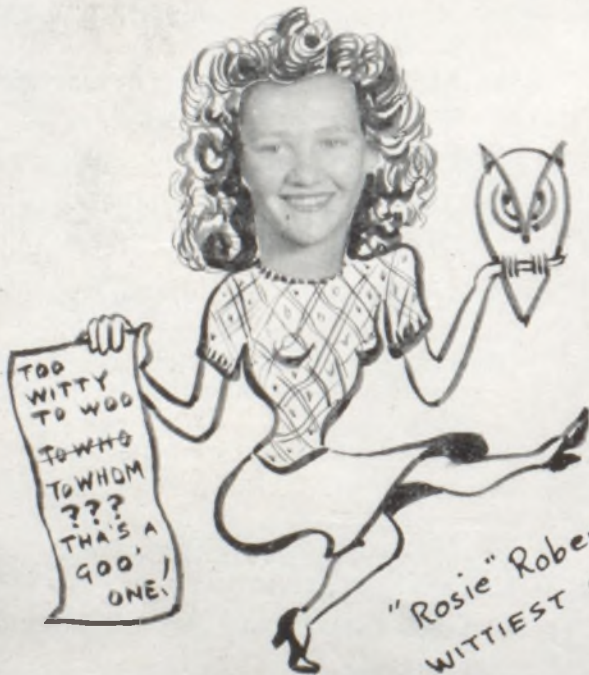 TOO
WITTY
TO WOO
TO WHO
TO WHOM
???
THA'S A
GOO'
ONE!
"Rosie"
WITTIEST